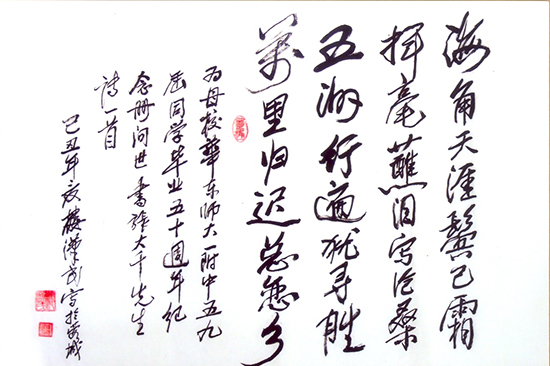 海角天涯鬓已霜
挥毫蘸泪写沧桑
五洲行遍犹寻胜
萬里归迟总恋乡
为母校華东师大一附中五九
届同学毕业五十週年纪
念册问世 書张大千先生
诗一首
己丑年夏樓写於城